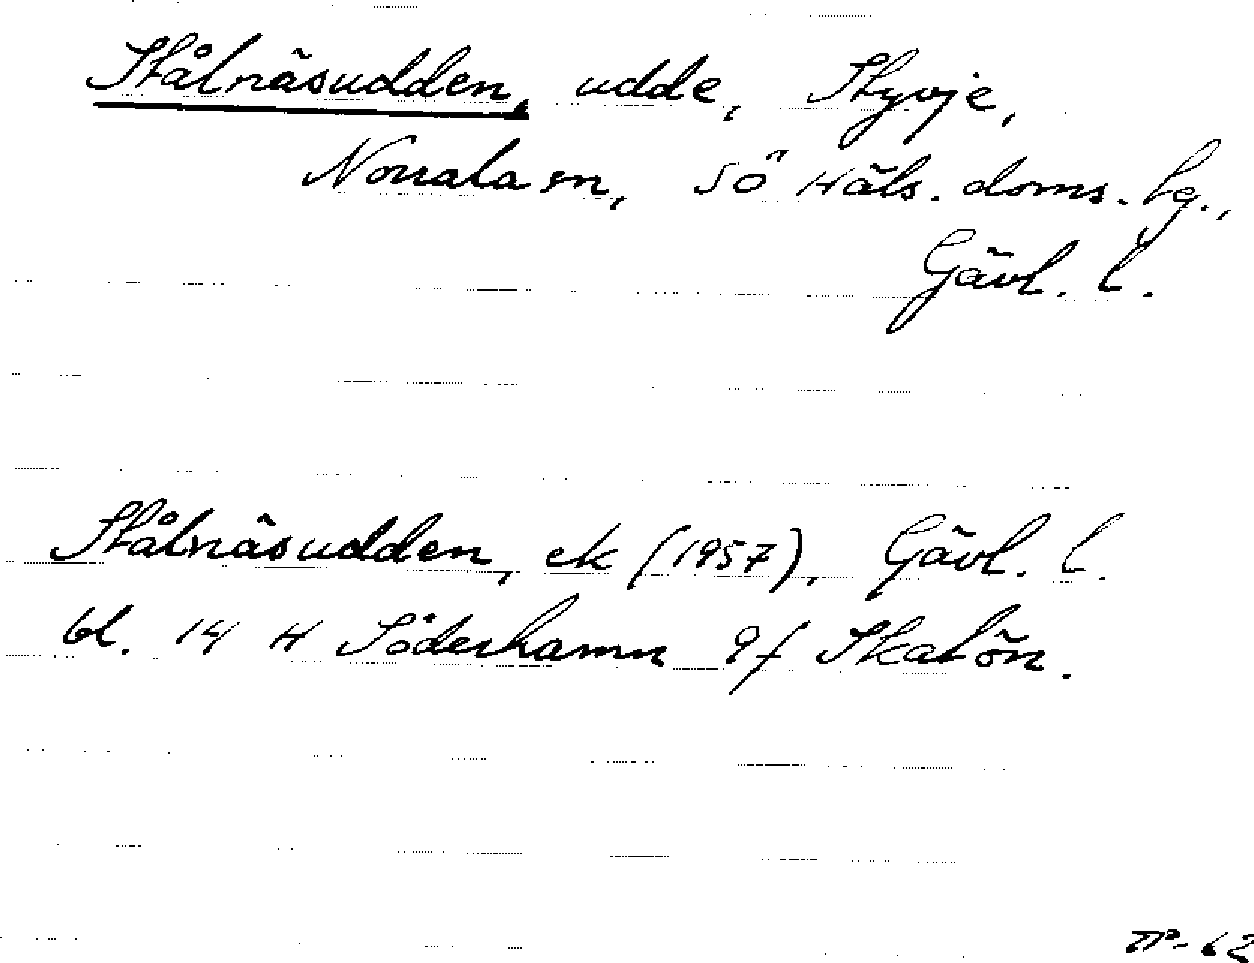 Stålnäsudden, udde, Styvje,
Norrala sn, SÖ Häls. doms. hg.,
Gävl. l.
Stålnäsudden, ek (1957), Gävl. l.
bl. 14 H Söderhamn 9f Skatön.
TP-62